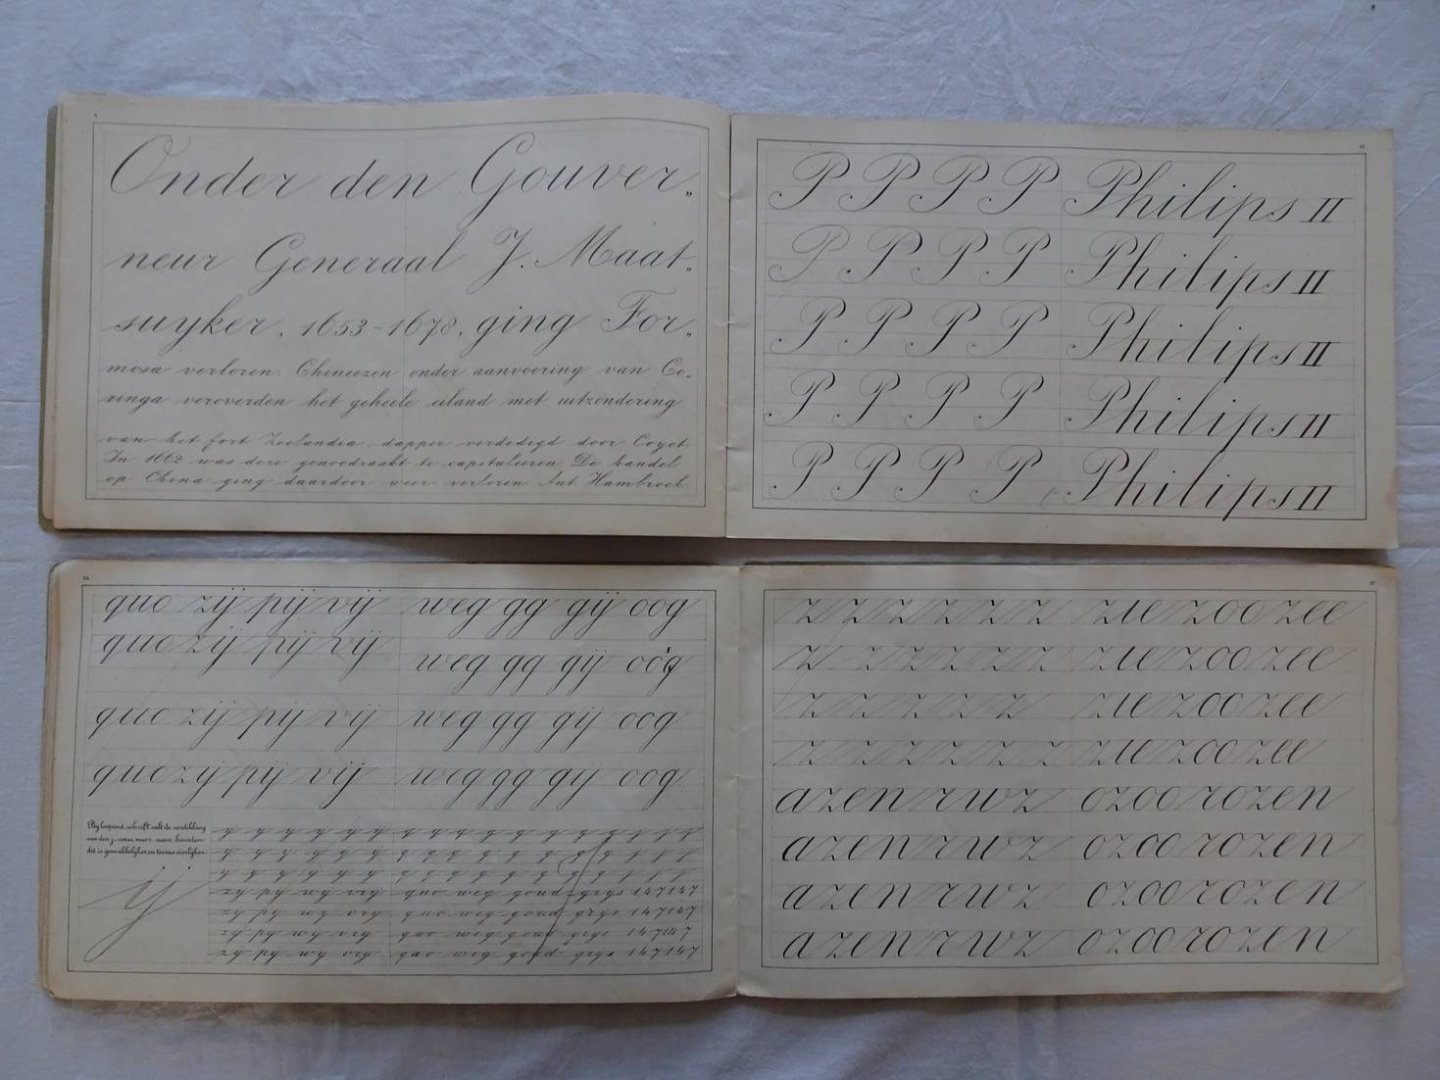 Onder den Gouver„
neur Generaal J. Maat„
suyker, 1653-1678, ging For„
mosa verloren. Chineezen onder aanvoering van Co„
xinga veroverden het geheele eiland met uitzondering
van het fort Zeelandia, dapper verdedigd door Coyet.
In 1662 was deze genoodzaakt te capituleeren. De handel
op China ging daardoor weer verloren. Ant. Hambroek.
P P P P Philips II
P P P P Philips II
P P P P Philips II
P P P P Philips II
P P P P Philips II
quo zij pij vij weg gg gij oog
quo zij pij vij weg gg gij oog
quo zij pij vij weg gg gij oog
quo zij pij vij weg gg gij oog
By loopend schrift valt de verdikking
van den j, soms meer naar beneden
dit is gemakkelijker en tevens sierlijker.
ij
zy py wy vry quo weg goud grys 147147
zy py wy vry quo weg goud grys 147147
zy py wy vry quo weg goud grys 147147
zy py wy vry quo weg goud grys 147147
z z z z z z zie zoo zee
z z z z z z zie zoo zee
z z z z z zie zoo zee
z z z z z z zie zoo zee
azen rwz ozoo rozen
azen rwz ozoo rozen
azen rwz ozoo rozen
azen rwz ozoo rozen